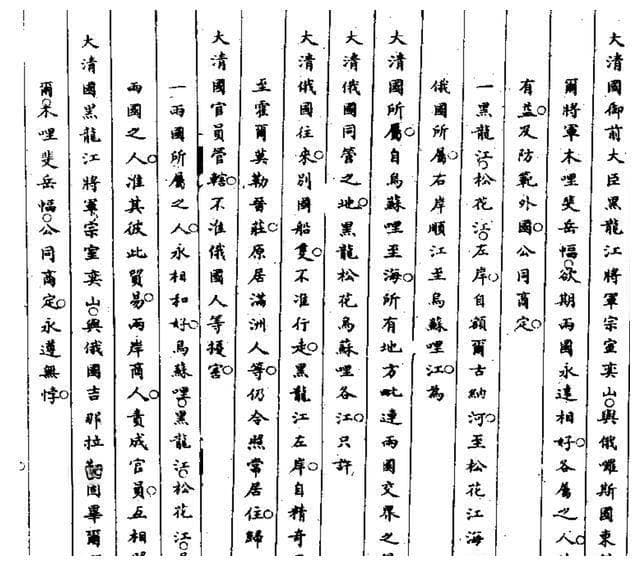 大清國御前大臣黑龍江將軍宗室奕山。與俄囉斯國東
爾將軍木哩斐岳幅。欲期兩國永遠相好。各屬之人
有益。及防範外國。公同商定。
一黑龍江。松花江。左岸。自額爾古納河。至松花江海
俄國所屬。右岸順江至烏蘇哩江。為
大清國所屬。自烏蘇哩至海。所有地方毗連兩國交界之
大清俄國同管之地。黑龍松花烏蘇哩各江。只許
大清俄國往來。別國船隻。不准行走。黑龍江左岸。自精奇
至霍爾莫勒晉莊。原居滿洲人等。仍令照常居住。歸
大清國官員管轄。不准俄國人等擾害。
一兩國所屬之人永相和好。烏蘇哩。黑龍江。松花江。
兩國之人。准其彼此貿易。兩岸商人。責成官員。互相
大清國黑龍江將軍宗室奕山。與俄國吉那拉固畢爾
爾。木哩斐岳幅。公同商定。永遵無悖。